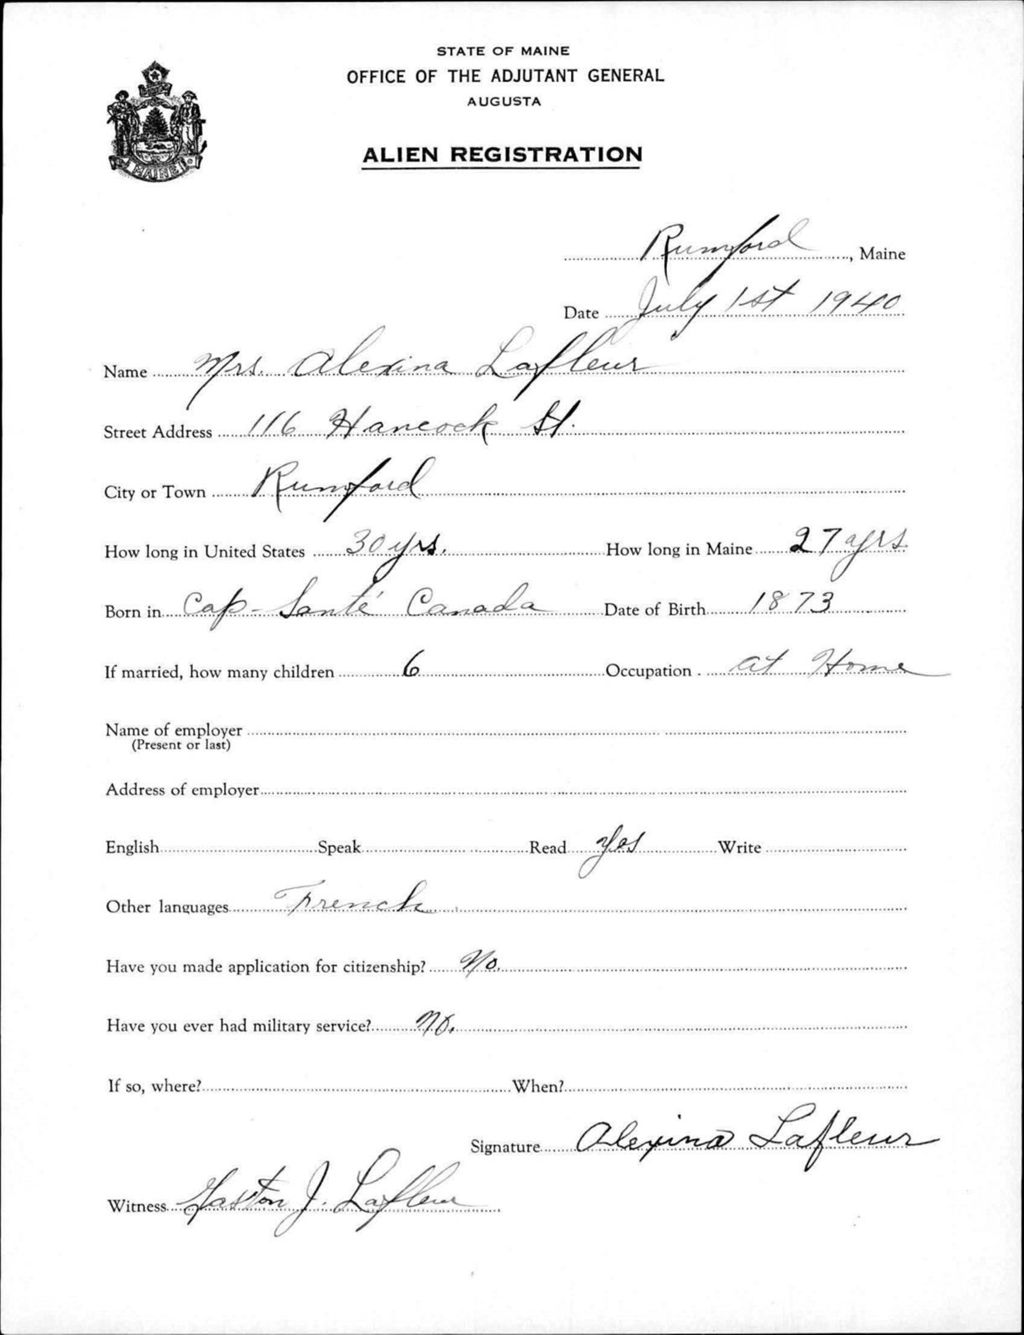 STATE OF MAINE
OFFICE OF THE ADJUTANT GENERAL
AUGUSTA
ALIEN REGISTRATION
MAINE
Rumford, Maine
Date July 1st 1940
Name Mrs. Alexina Lafleur
Street Address 116 Hancock St.
City or Town Rumford
How long in United States 30 yrs. How long in Maine 27 yrs
Born in Cap-Santé Canada Date of Birth 1873
If married, how many children 6 Occupation at Home
Name of employer
(Present or last)
Address of employer
English Speak Read Yes Write
Other languages French
Have you made application for citizenship? No.
Have you ever had military service? No.
If so, where? When?
Signature Alexina Lafleur
Witness Gaston J. Lafleur